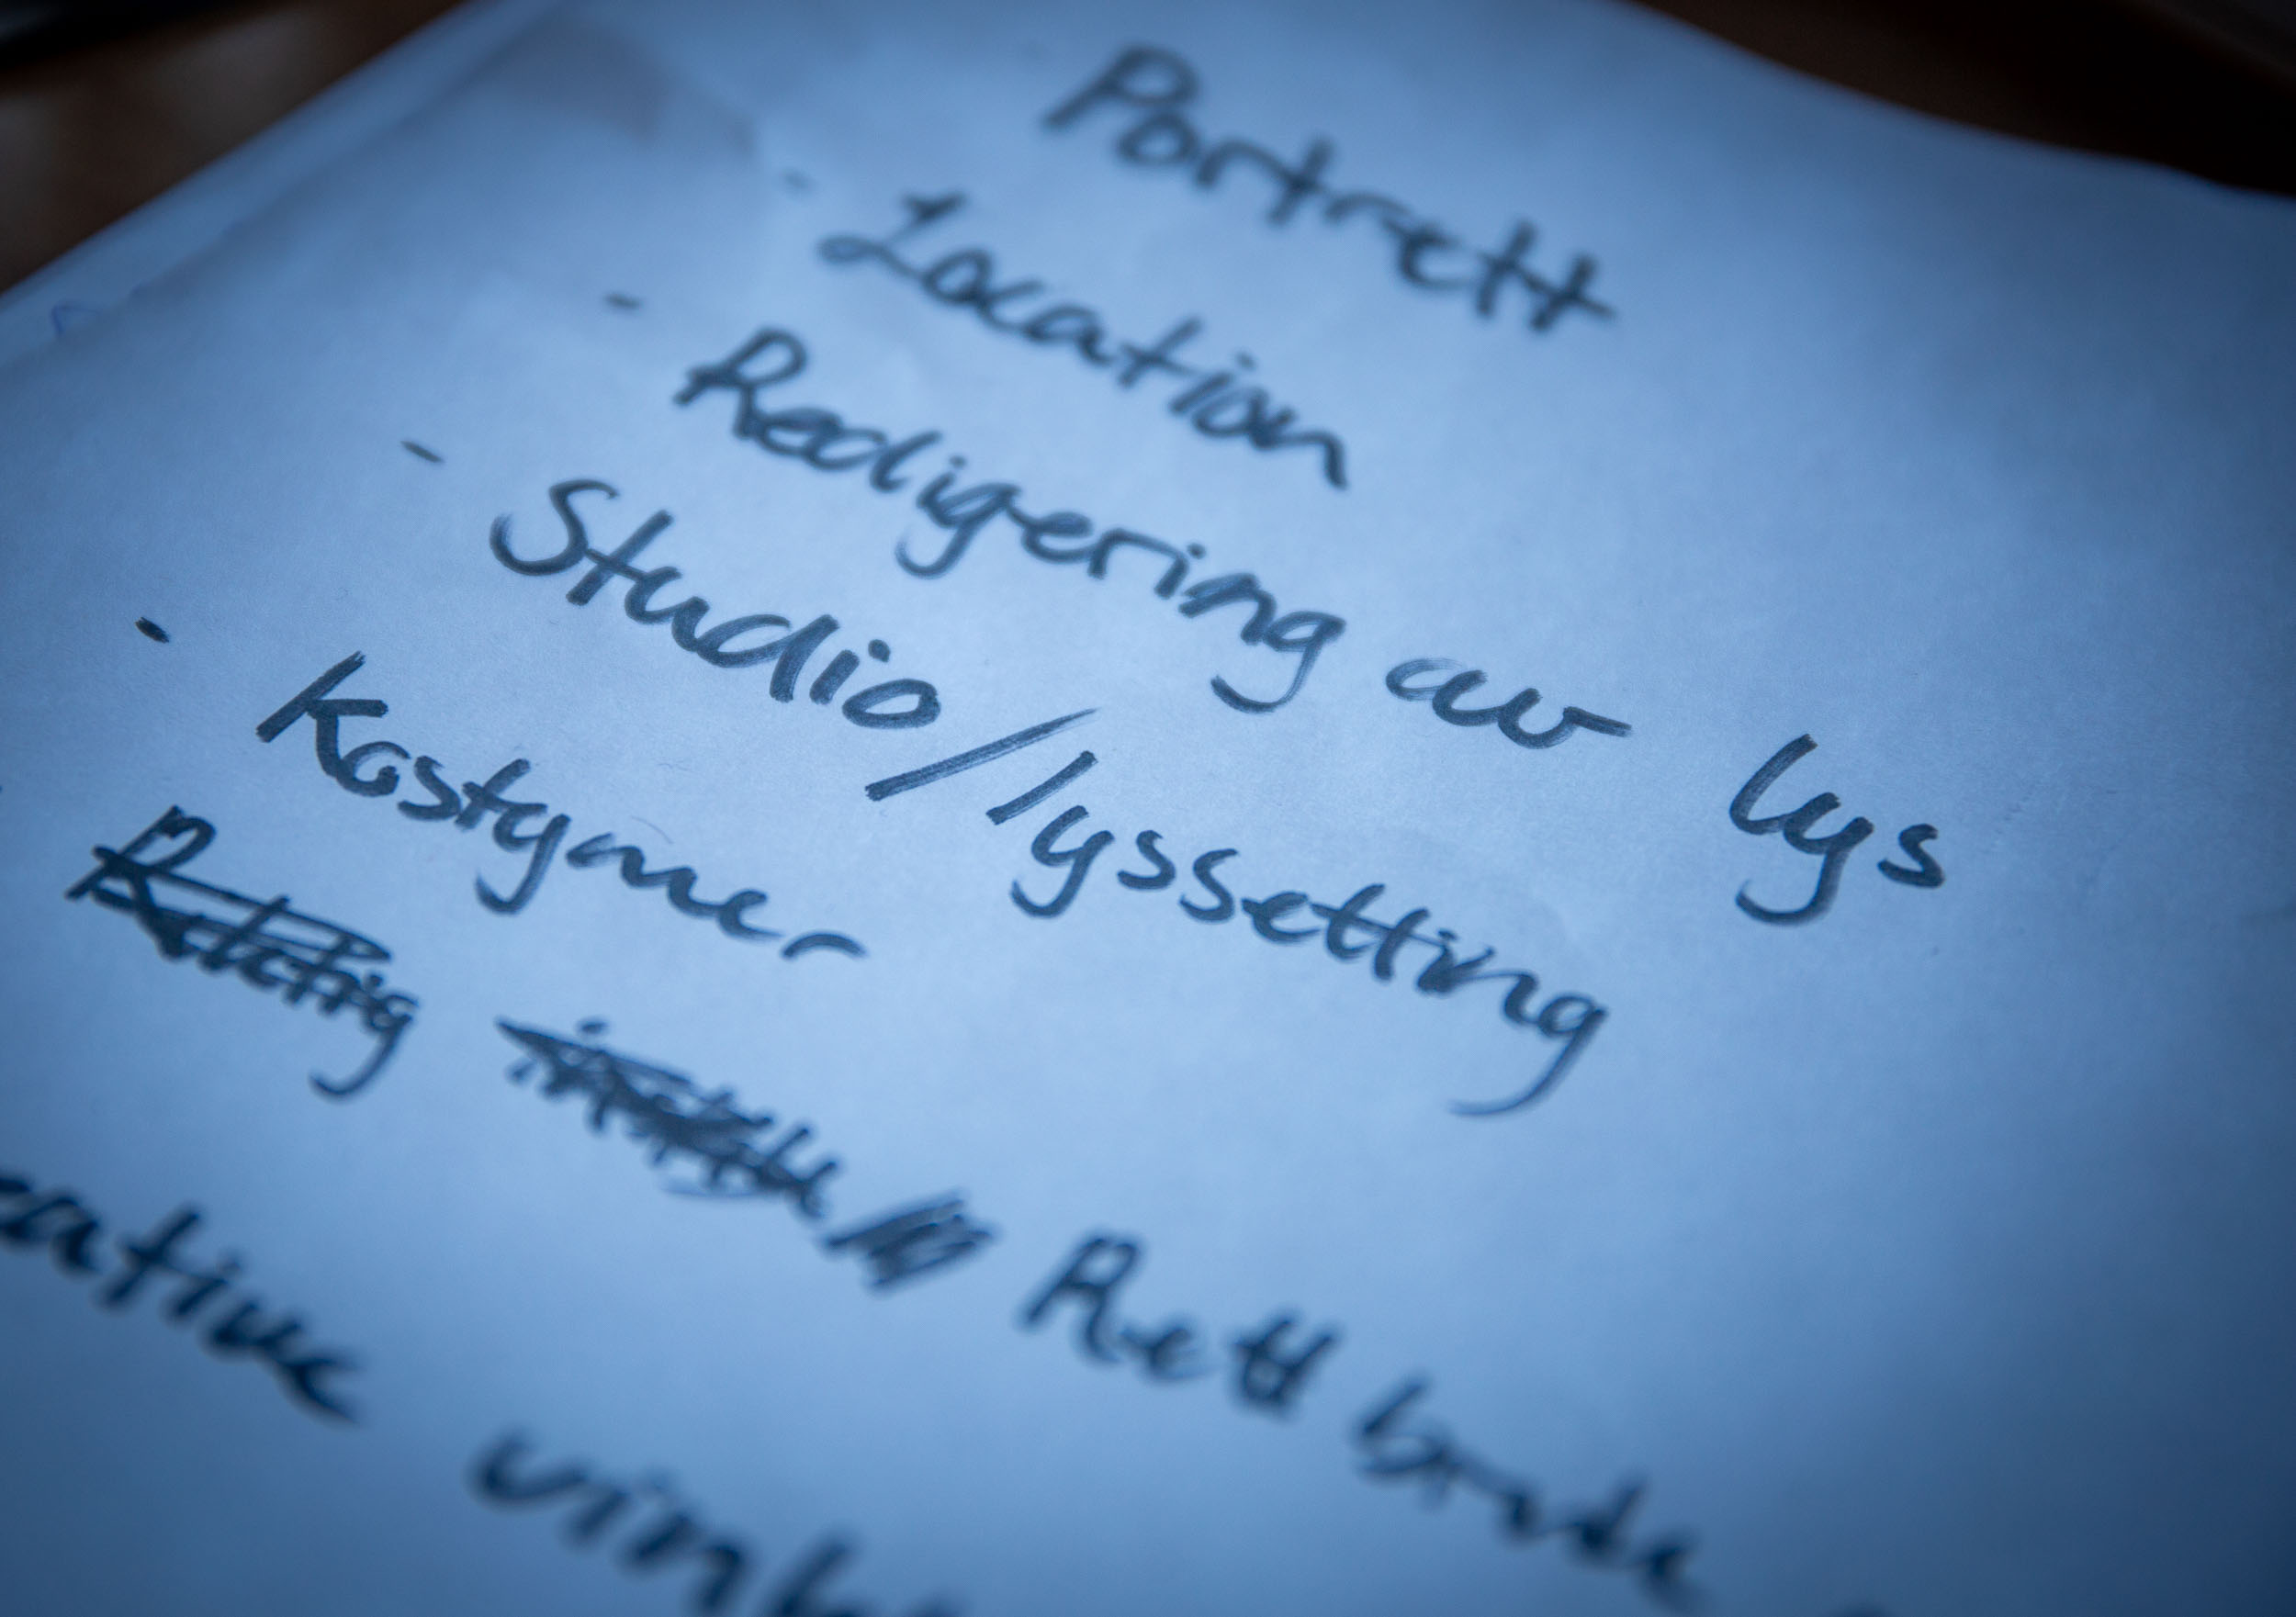 Portrett
- Location
- Redigering av lys
- Studio/lyssetting
- Kostymer
Rett bruk